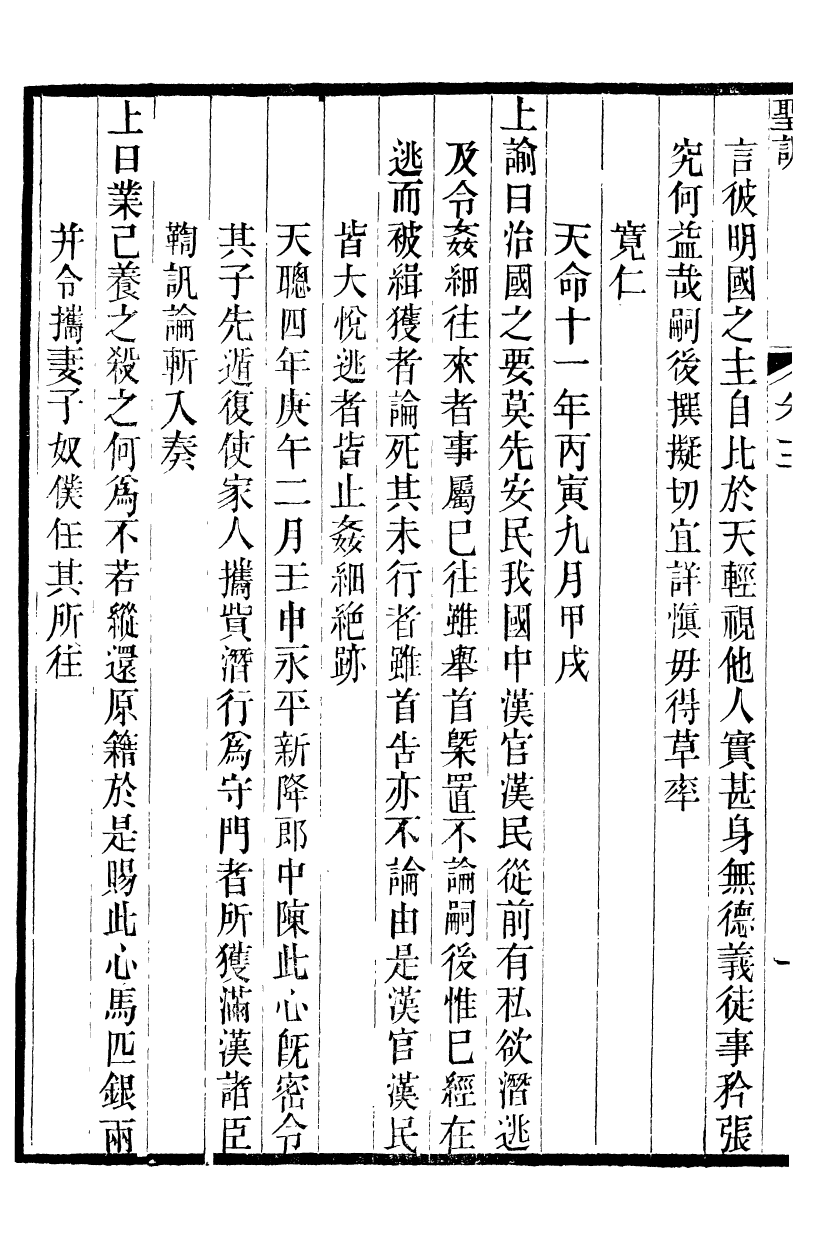 聖訓
卷三
一
言彼明國之主自比於天輕視他人實甚身無德義徒事矜張
究何益哉嗣後撰擬切宜詳愼毋得草率
寬仁
天命十一年丙寅九月甲戌
上諭曰治國之要莫先安民我國中漢官漢民從前有私欲潛逃
及令姦細往來者事屬巳往雖舉首槩置不論嗣後惟巳經在
逃而被緝獲者論死其未行者雖首告亦不論由是漢官漢民
皆大悅逃者皆止姦細絶跡
天聰四年庚午二月壬申永平新降郎中陳此心旣密令
其子先遁復使家人攜貲潛行爲守門者所獲滿漢諸臣
鞫訊論斬入奏
上曰業己養之殺之何爲不若縱還原籍於是賜此心馬匹銀兩
并令攜妻子奴僕任其所往